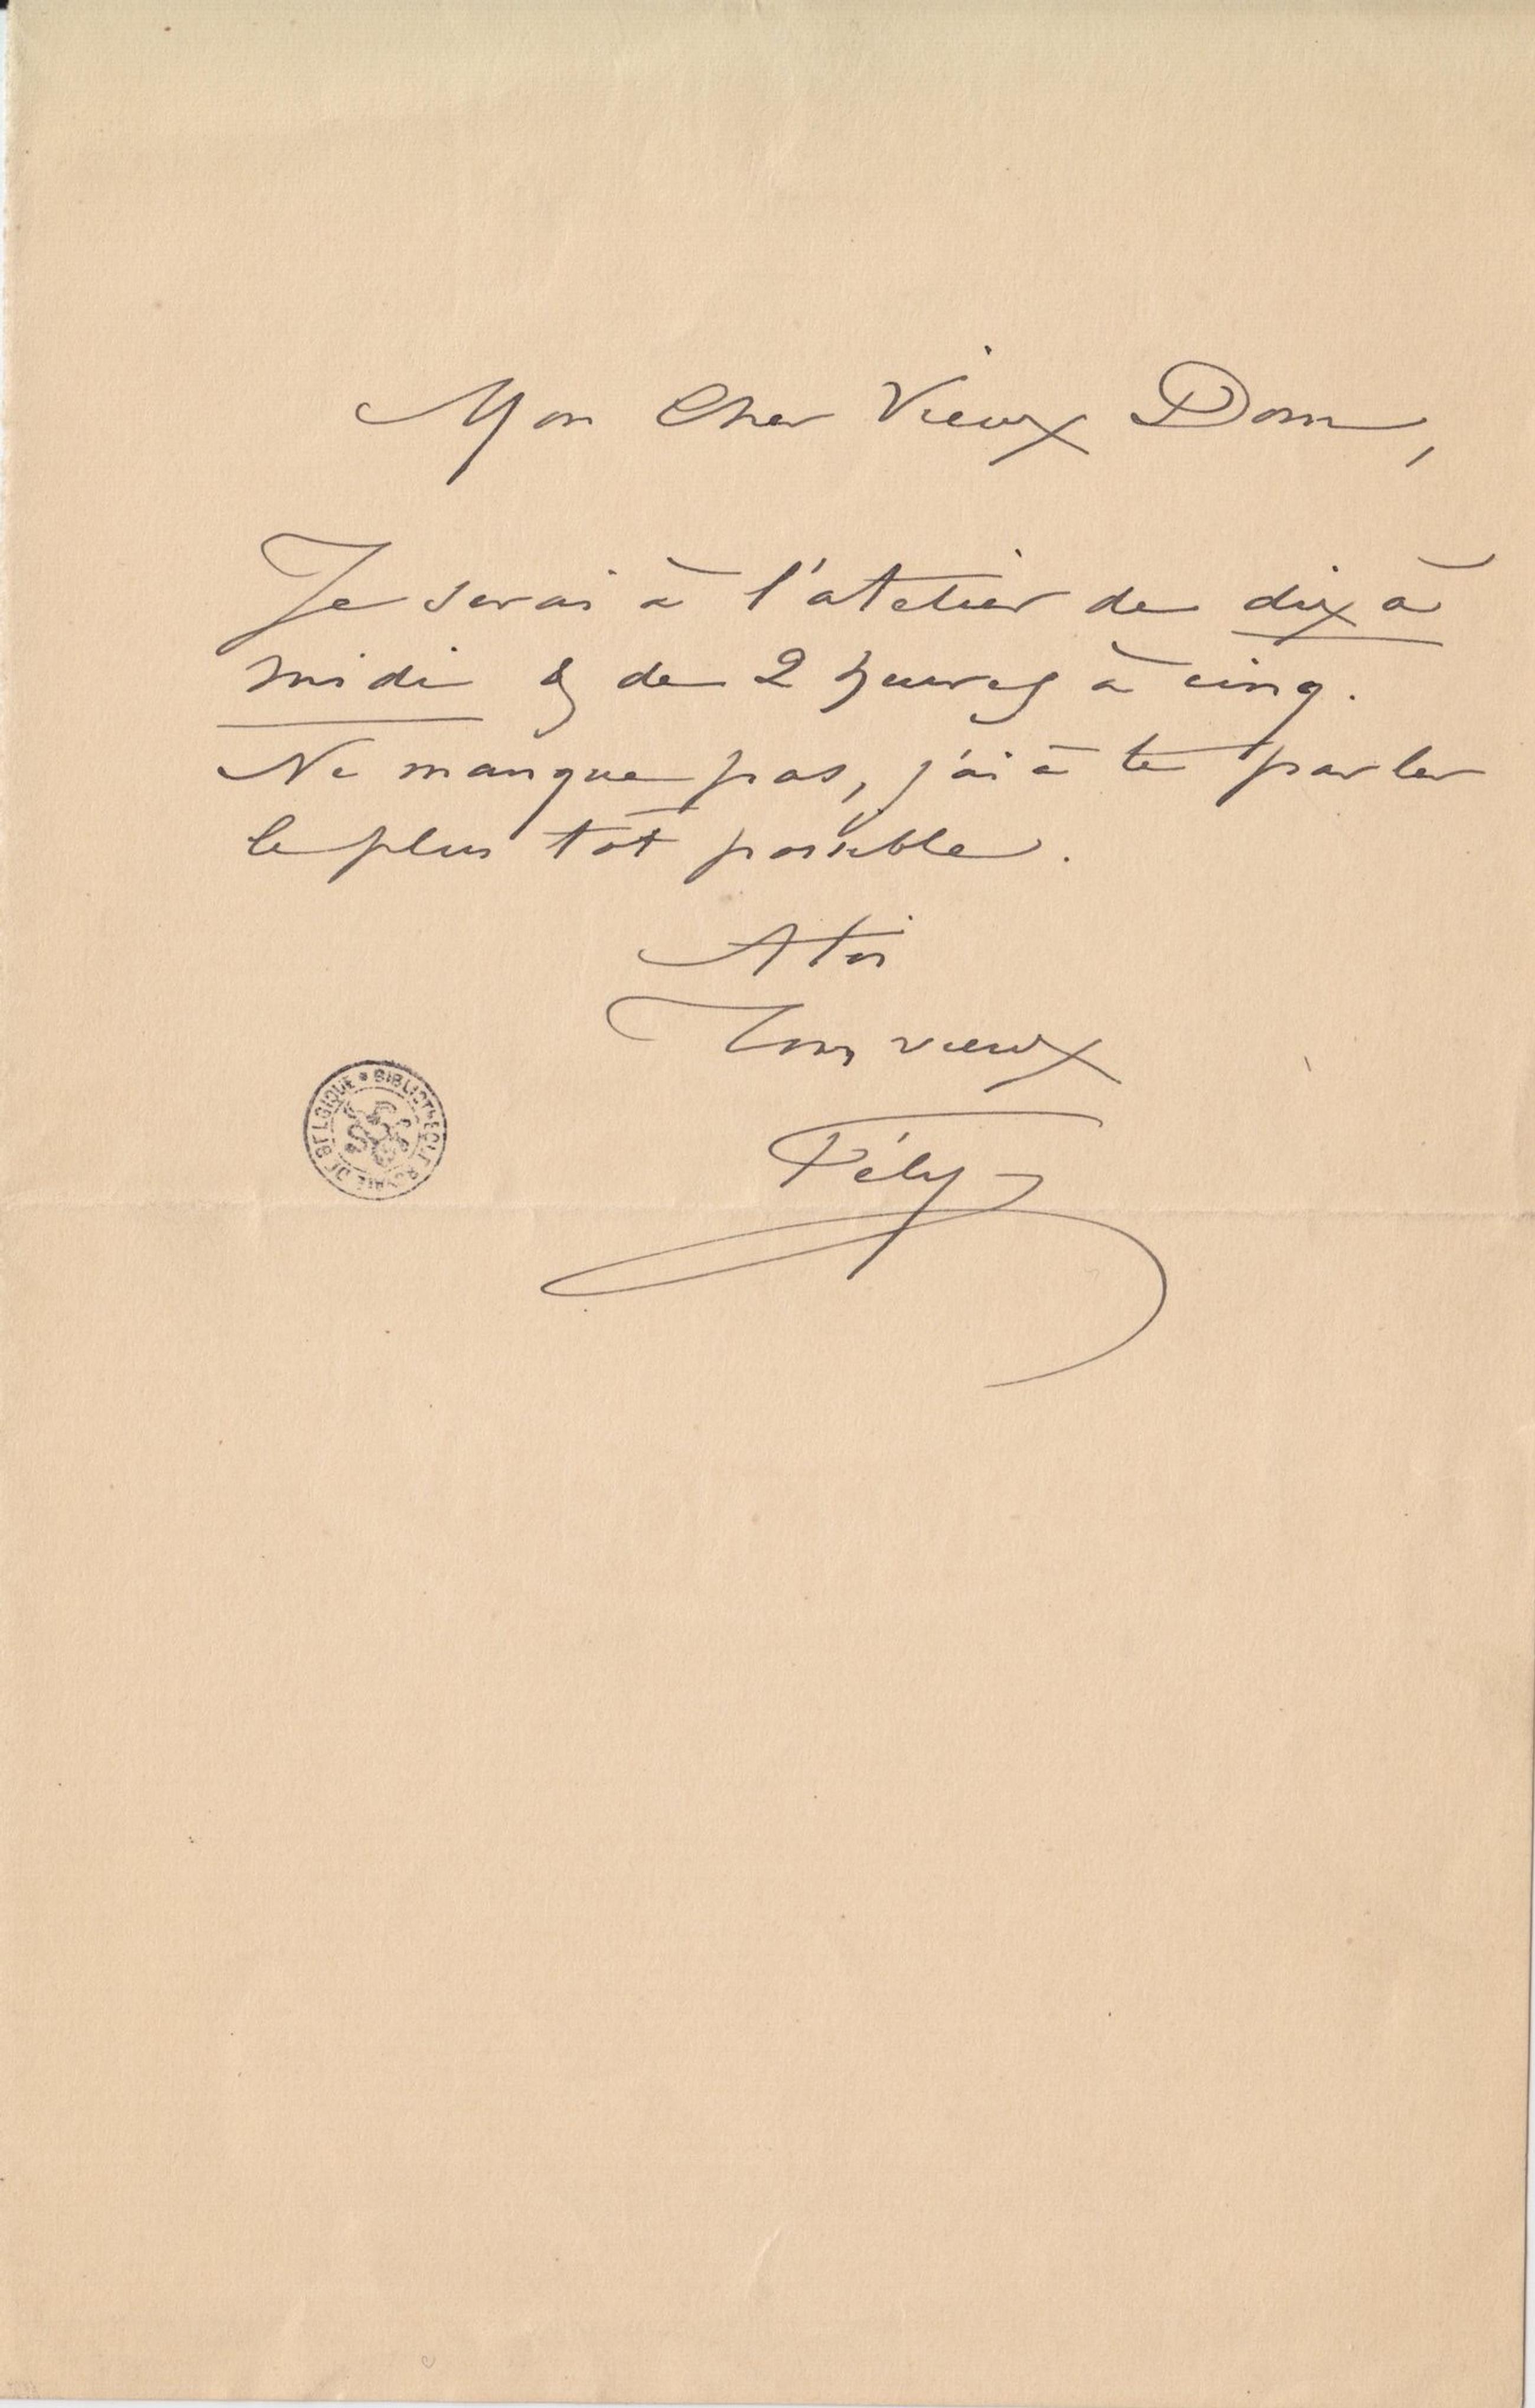 Mon Cher Vieux Dom,
Je serai à l'atelier de dix à
midi & de 2 heures à cinq.
Ne manque pas, j'ai à te parler
le plus tôt possible.
A toi
Ton vieux
Fély
BIBLIOTHÈQUE ROYALE DE BELGIQUE